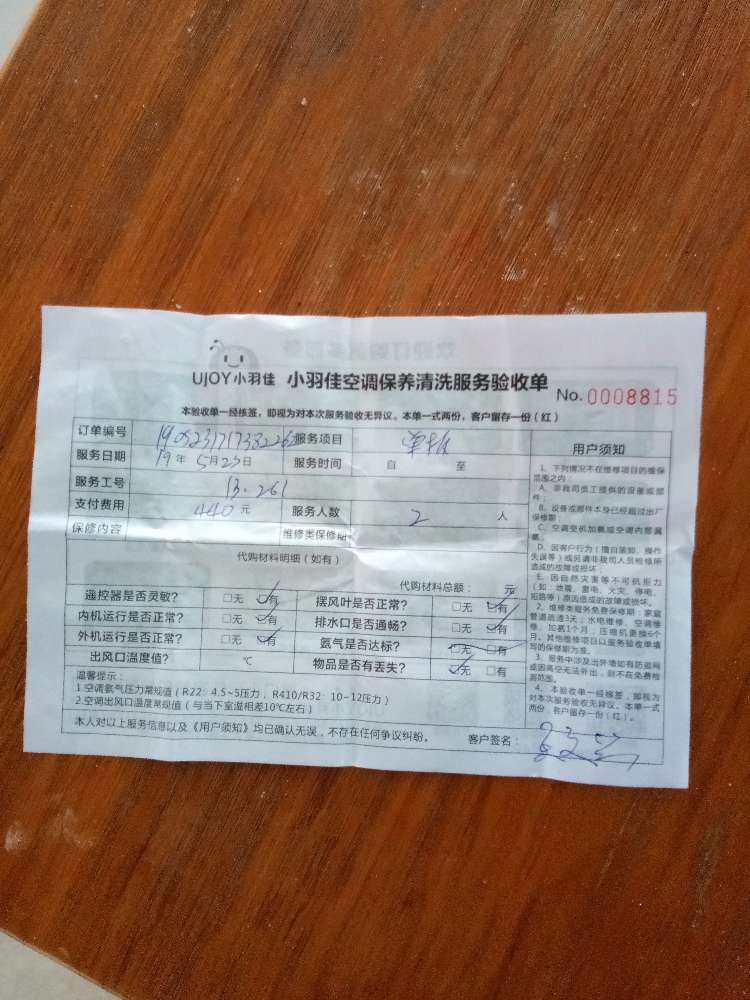 UJOY小羽佳 小羽佳空调保养清洗服务验收单 No.0008815
本验收单一经核签，即视为对本次服务验收无异议。本单一式两份，客户留存一份（红）
订单编号 服务项目
服务日期 19年5月23日 服务时间 自 至
服务工号 13.261
支付费用 440元 服务人数 2 人
保修内容 维修类保修期
代购材料明细（如有）
代购材料总额： 元
遥控器是否灵敏？ □无 □有 摆风叶是否正常？ □无 □有
内机运行是否正常？ □无 □有 排水口是否通畅？ □无 □有
外机运行是否正常？ □无 □有 氨气是否达标？ □无 □有
出风口温度值？ ℃ 物品是否有丢失？ □无 □有
温馨提示：
1.空调氨气压力常规值（R22：4.5~5压力，R410/R32：10-12压力）
2.空调出风口温度常规值（与当下室温相差10℃左右）
本人对以上服务信息以及《用户须知》均已确认无误，不存在任何争议纠纷。 客户签名：
用户须知
1、下列情况不在维修项目的维保
范围之内：
A、非我司员工提供的设备或部
件；
B、设备或部件本身已经超过出厂
保修期；
C、空调空机加氨或空调内部漏
氨；
D、因客户行为（擅自装卸、操作
失误等）或另请非我司人员检修所
造成的故障或损坏；
E、因自然灾害等不可抗拒力
（如：地震、雷电、火灾、停电、
短路等）原因造成的故障或损坏。
2、维修类服务免费保修期：家庭
管道疏通3天；水电维修、空调维
修、加氨1个月；压缩机更换6个
月。其他维修项目以服务验收单填
写的保修期为准。
3、服务中涉及出外墙如有防盗网
或因高空无法外出，则不在免费检
测范围。
4、本验收单一经核签，即视为
对本次服务验收无异议。本单一式
两份，客户留存一份（红）。